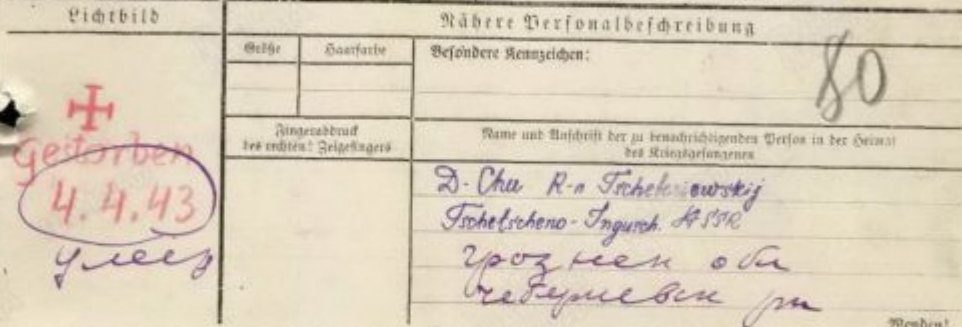 Lichtbild
Nähere Personalbeschreibung
Größe
Haarfarbe
Besondere Kennzeichen:
80
Fingerabdruck
des rechten! Zeigefingers
Name und Anschrift der zu benachrichtigenden Person in der Heimat
des Kriegsgefangenen
gestorben
4.4.43
умер
D-Chu R-n
Tschetscheno-Ingusch. ASSR
грознен обл
Wenden!